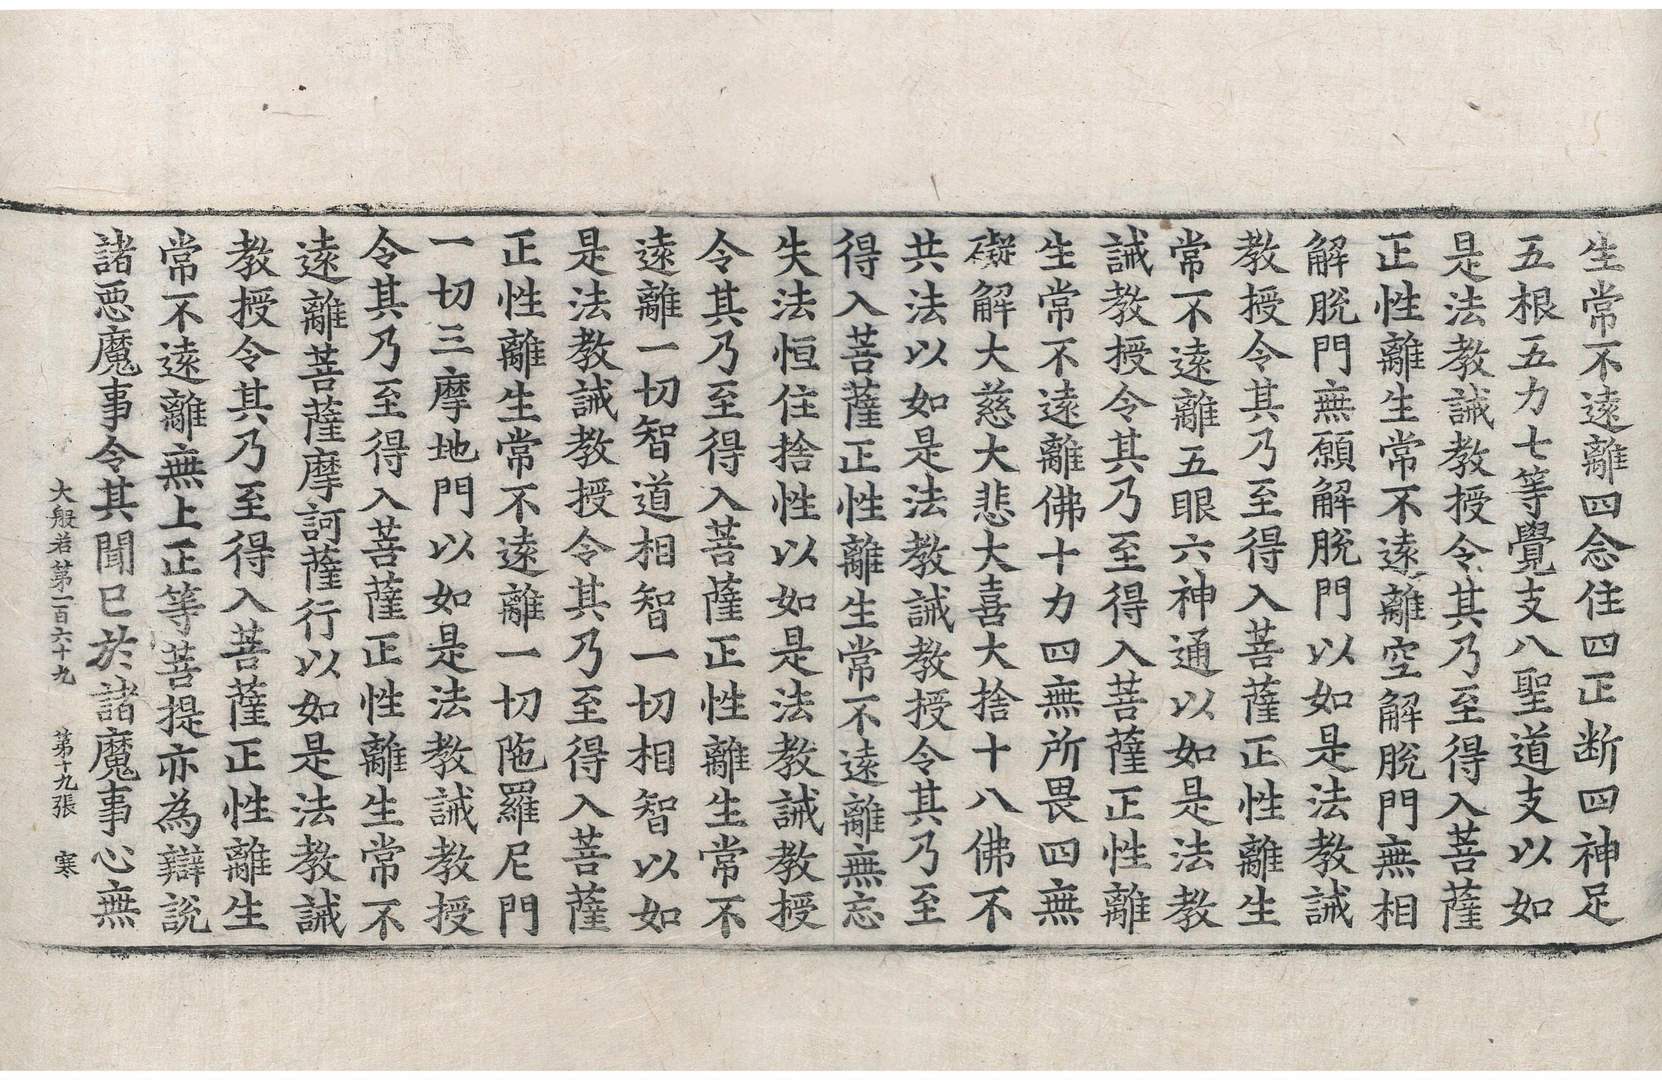 生常不遠離四念住四正断四神足
五根五力七等覺支八聖道支以如
是法教誡教授令其乃至得入菩薩
正性離生常不遠離空解脫門無相
解脫門無願解脫門以如是法教誡
教授令其乃至得入菩薩正性離生
常不遠離五眼六神通以如是法教
誡教授令其乃至得入菩薩正性離
生常不遠離佛十力四無所畏四無
礙解大慈大悲大喜大捨十八佛不
共法以如是法教誡教授令其乃至
得入菩薩正性離生常不遠離無忘
失法恒住捨性以如是法教誡教授
令其乃至得入菩薩正性離生常不
遠離一切智道相智一切相智以如
是法教誡教授令其乃至得入菩薩
正性離生常不遠離一切陁羅尼門
一切三摩地門以如是法教誡教授
令其乃至得入菩薩正性離生常不
遠離菩薩摩訶薩行以如是法教誡
教授令其乃至得入菩薩正性離生
常不遠離無上正等菩提亦為辯說
諸惡魔事令其聞已於諸魔事心無
大般若第一百六十九 第十九張 寒